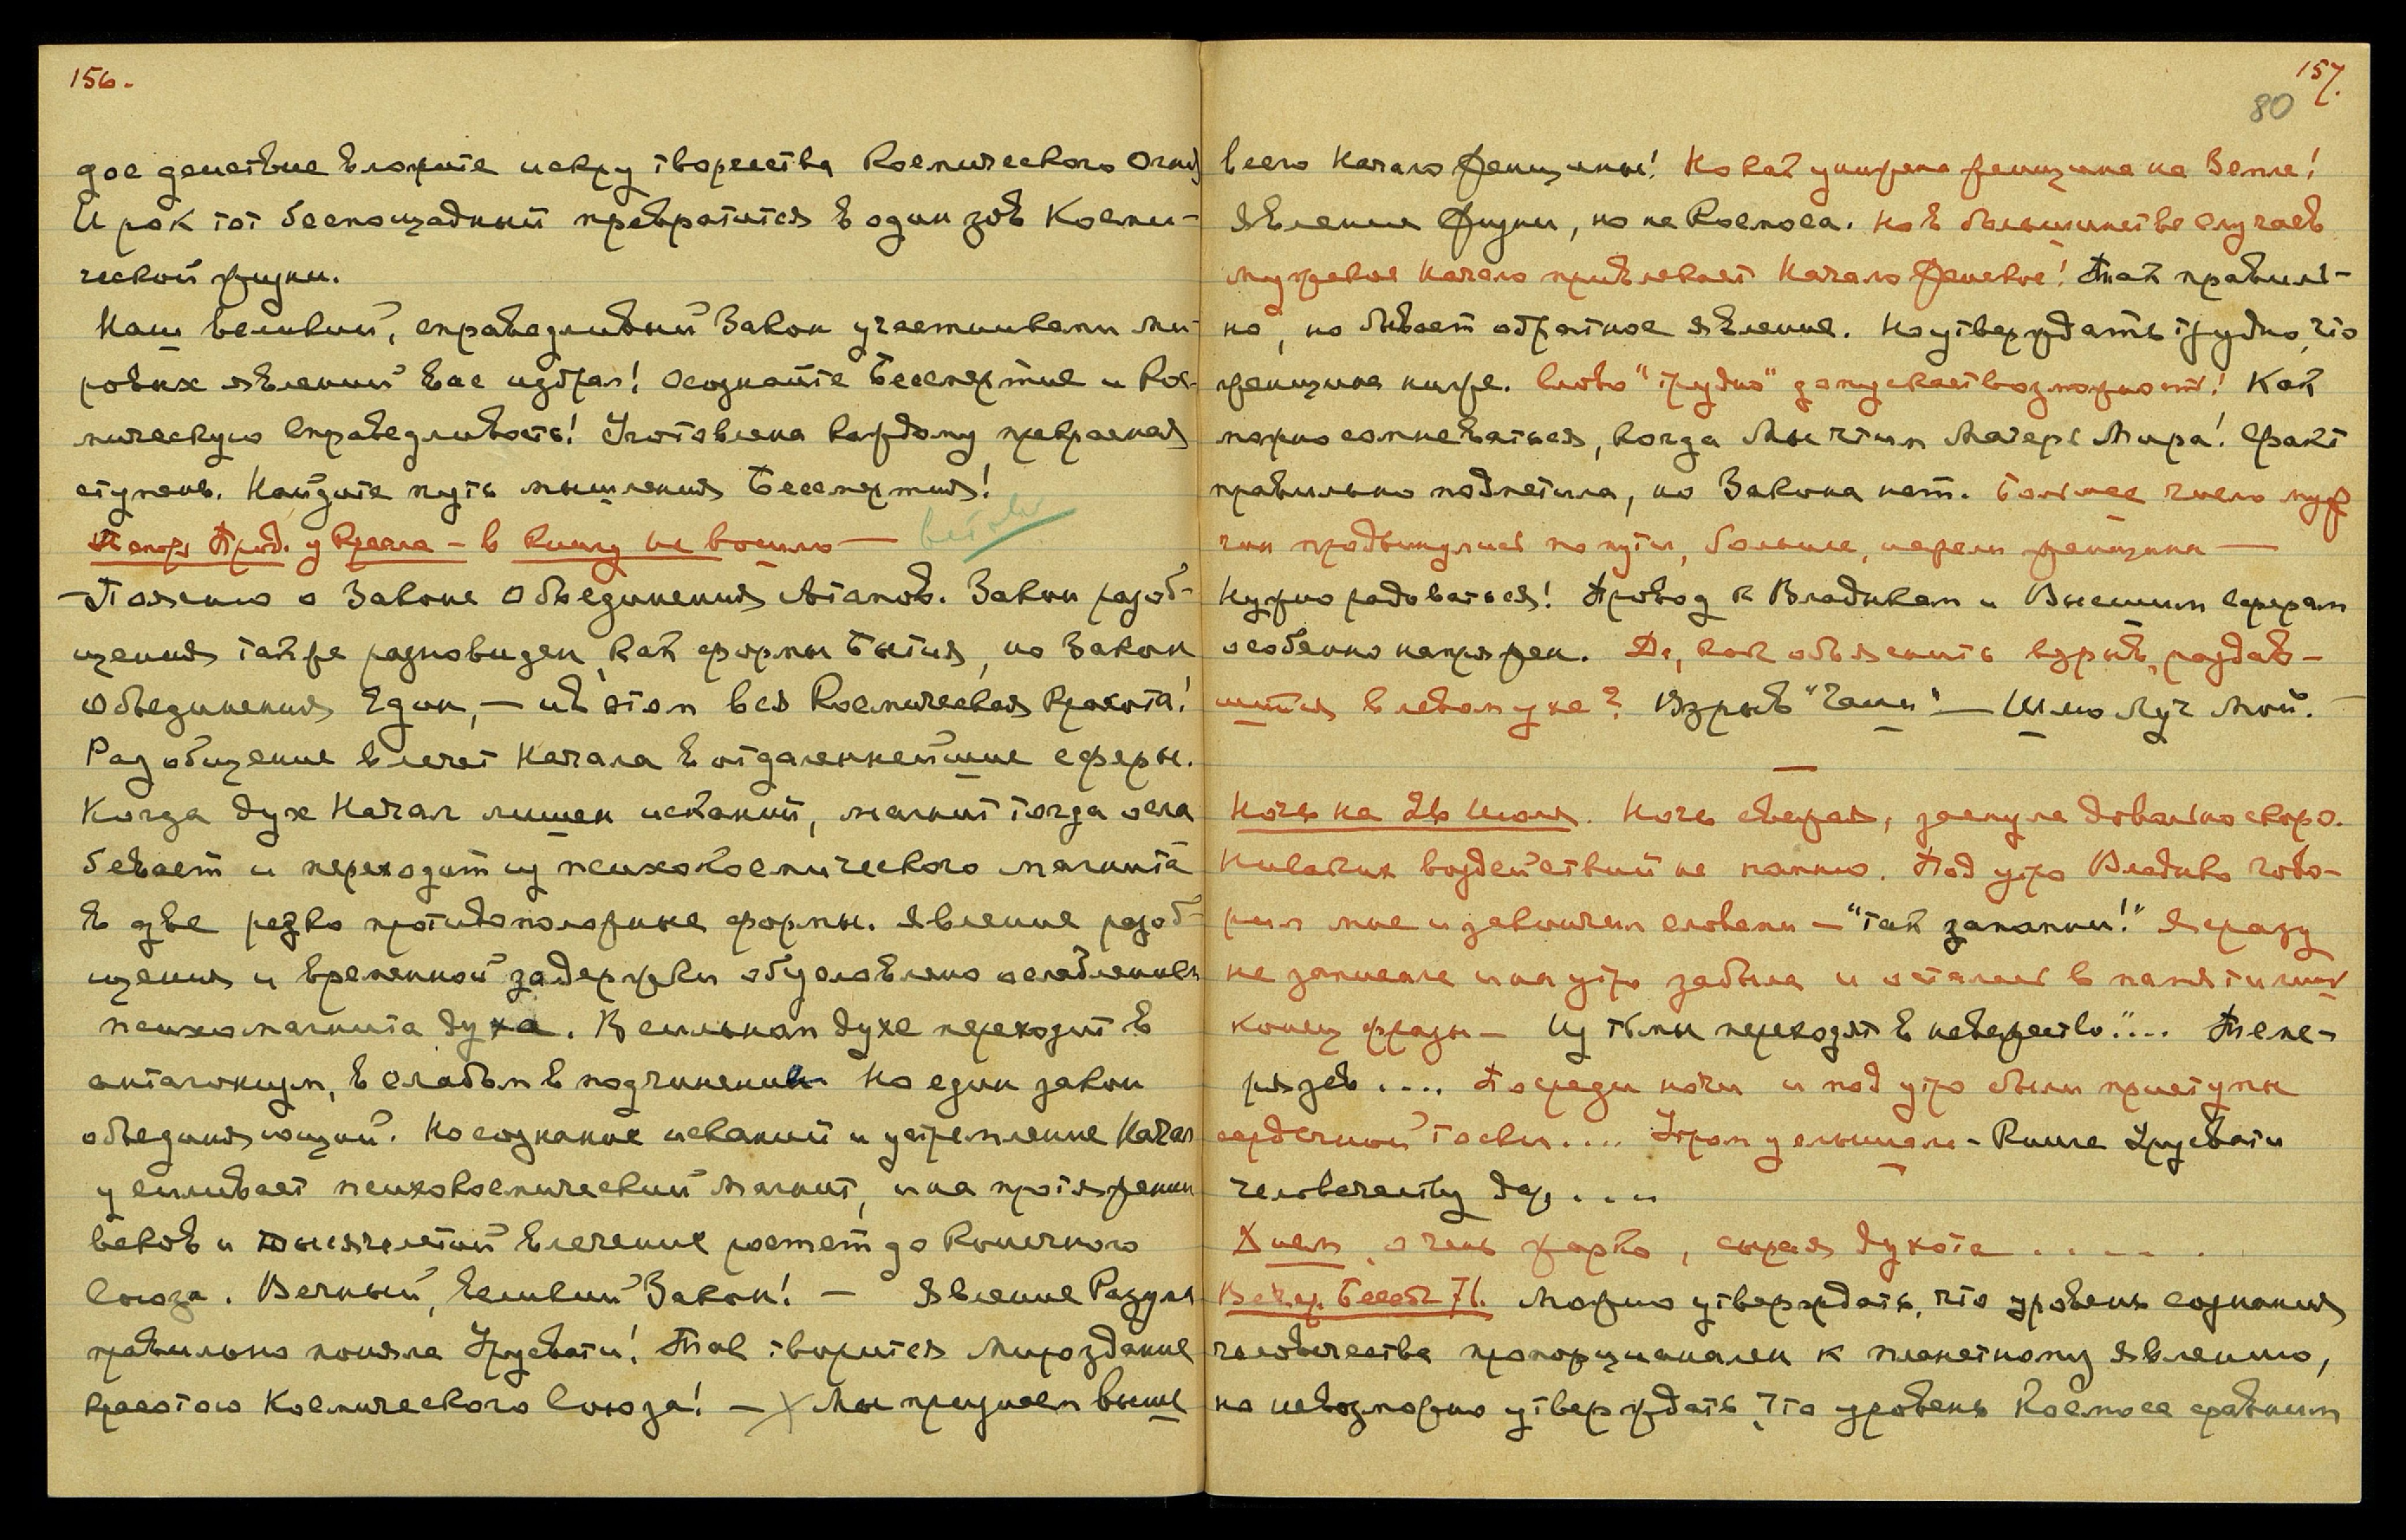 156.
дое действие вложите искру творчества Космического Огня
И рок тот беспощадный превратится в один зов Косми-
ческой жизни.
Наш великий, справедливый Закон участниками ми-
ровых явлений вас избрал! Осознайте Бессмертие и Кос-
мическую Справедливость! Уготовлена каждому прекрасная
ступень. Найдите путь мышления Бессмертия!
Прод. у Кресла — в книгу не вошло —
— Поясню о Законе Объединения Атомов. Закон разоб-
щения также разновиден, как формы Бытия, но Закон
Объединения Един, — и в этом вся Космическая Красота!
Разобщение влечет Начала в отдаленнейшие сферы.
Когда дух Начал лишен исканий, магнит тогда осла
бевает и переходит из психокосмического магнита
в две резко противоположные формы. Явление разоб-
щения и временной задержки обусловлено ослаблением
психомагнита духа. В сильном духе переходит в
антагонизм, в слабом в подчинение. Но един закон
объединяющий. Но сознание исканий и устремление Начал
усиливает психокосмический магнит, и на протяжении
веков и тысячелетий влечение растет до конечного
Союза. Вечный, великий Закон! — Явление Разума
правильно поняла Урусвати! Так творится Мироздание
красотою Космического Союза! — Мы признаем выше
157.
80
всего Начало Женщины! Но как унижена женщина на Земле!
Явление жизни, но не Космоса. Но в большинстве случаев
мужское Начало привлекает Начало Женское! Так правиль-
но, но бывает обратное явление. Но утверждать трудно, что
женщина ниже. Слово "трудно" допускает возможность! Как
можно сомневаться, когда Мы чтим Матерь Мира! Факт
правильно подметила, но Закона нет. Большее число муж
чин продвинулись по пути, больше, нежели женщины —
Нужно радоваться! Провод к Владыкам и Высшим сферам
особенно напряжен. Вл., как объяснить взрыв, раздав-
шийся в левом ухе? Взрыв "Чаши" — Шлю Луч Мой. —
Ночь на июля. Ночь свежая, заснула довольно скоро.
Никаких воздействий не помню. Под утро Владыка гово-
рил мне и закончил словами — "Так запомни!" Я сразу
не записала и на утро забыла и остался в памяти лишь
конец фразы — Из тьмы переходят в невежество".... Тене-
рязев .... Посреди ночи и под утро были приступы
сердечной тоски.... Утром услышала — Книга Урусвати
человечеству дар....
Днем очень жарко, сырая духота .....
Вечер. Бесед. 71. Можно утверждать, что уровень сознания
человечества пропорционален к планетному явлению,
но невозможно утверждать, что уровень Космоса сравним